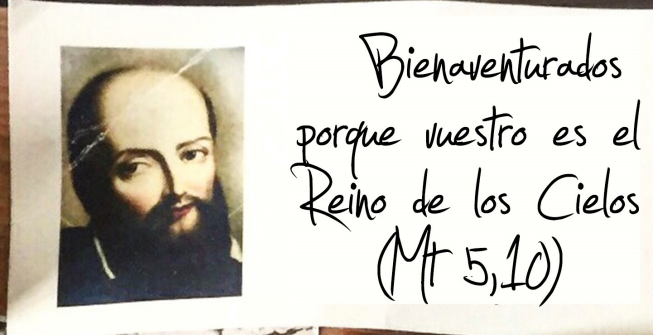 Bienaventurados
porque vuestro es el
Reino de los Cielos
(Mt 5,10)